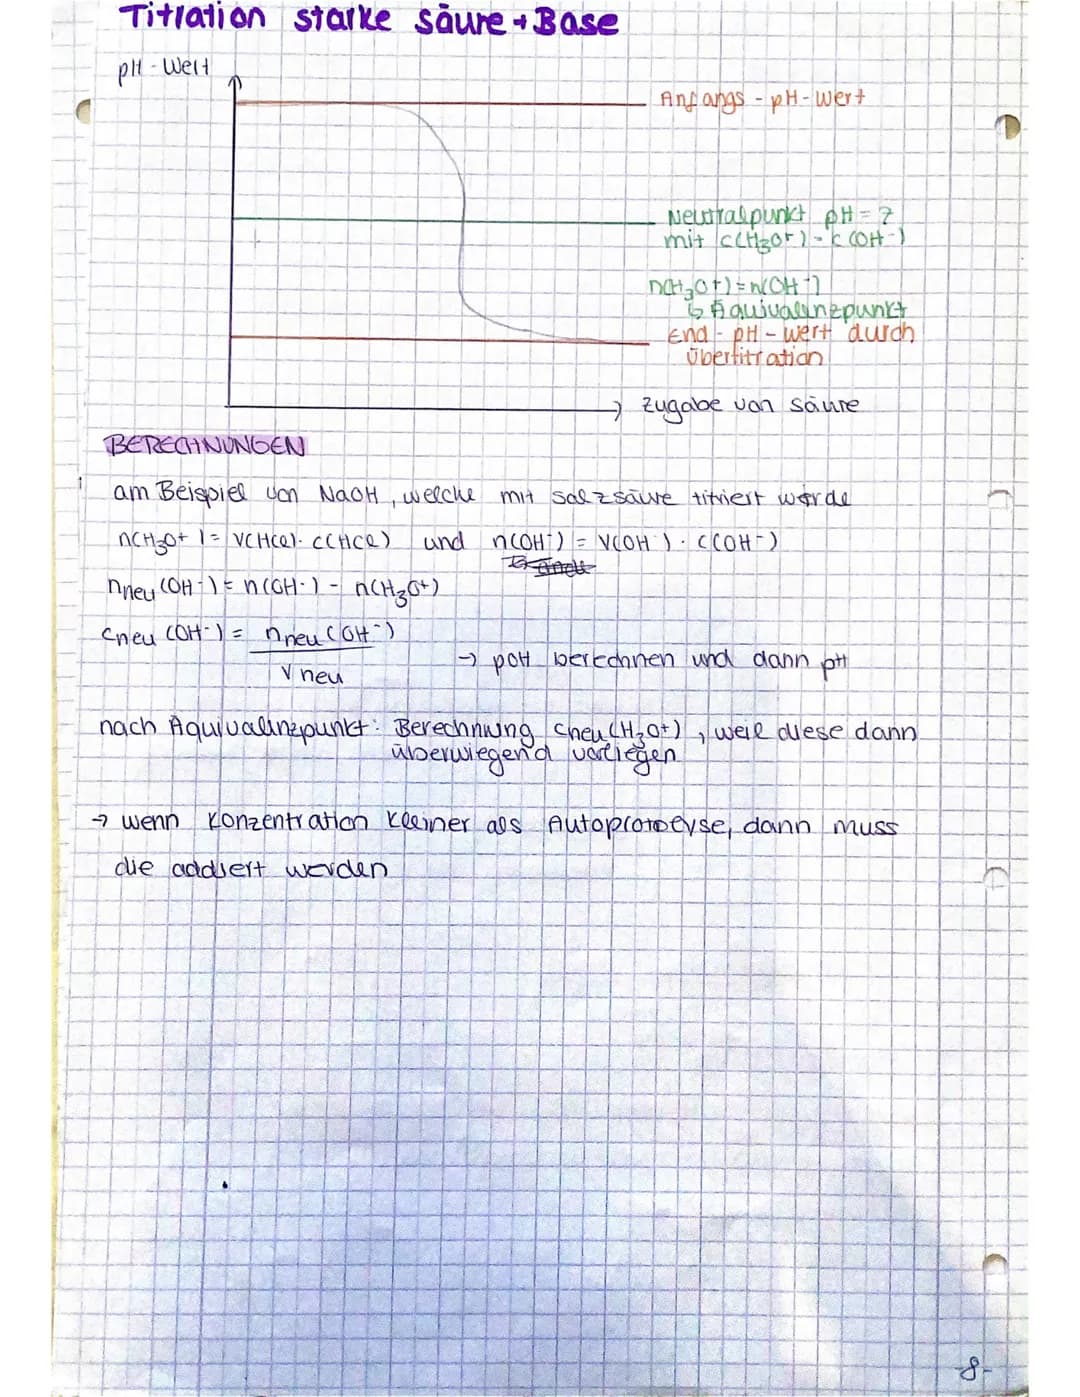 Titration starke Säure + Base
pH - Wert
Anfangs - pH - Wert
Neutralpunkt pH = 7
mit c(H3O+) = c(OH-)
n(H3O+) = n(OH-)
↳ Äquivalenzpunkt
End - pH - Wert durch
Übertitration
→ Zugabe von Säure
BERECHNUNGEN
am Beispiel von NaOH, welche mit Salzsäure titriert wurde
n(H3O+) = V(HCl) · c(HCl) und n(OH-) = V(OH-) · c(OH-)
nneu (OH-) = n(OH-) - n(H3O+)
cneu (OH-) = nneu (OH-)
V neu
→ pOH berechnen und dann pH
nach Äquivalenzpunkt: Berechnung cneu (H3O+), weil diese dann
überwiegend vorliegen
→ wenn Konzentration kleiner als Autoprotolyse, dann muss
die addiert werden
-8-